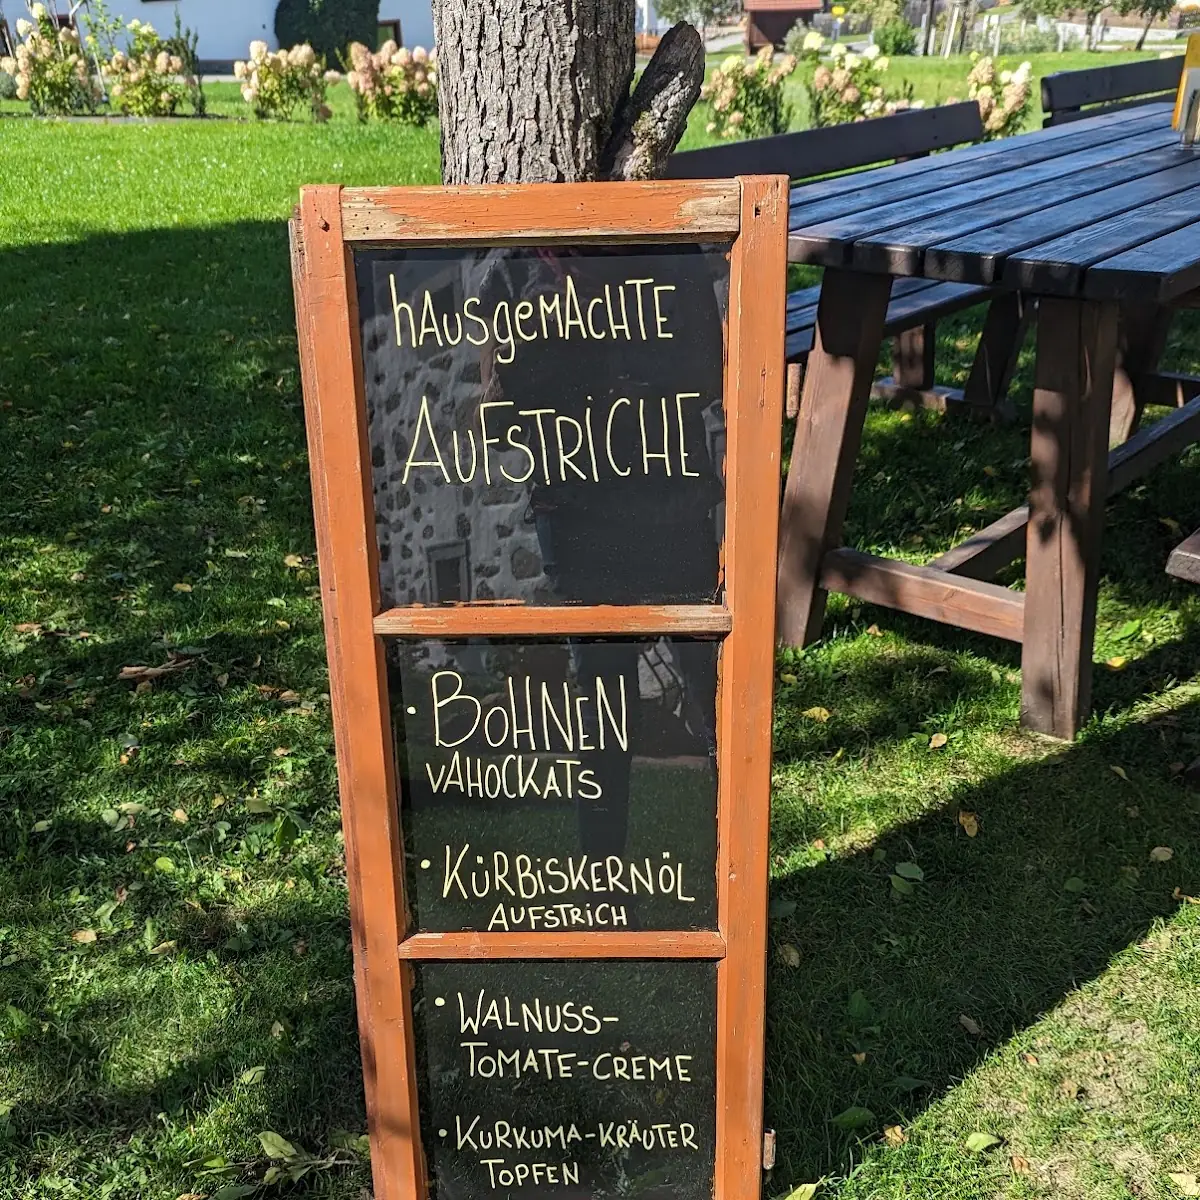 hAusgeMACHTE
AUFSTRiCHE
• BOHNEN
VAHOCKATS
• KÜRBiSKERNÖL
AUFSTRiCH
• WALNUSS-
TOMATE-CREME
• KURKUMA-KRÄUTER
TOPFEN